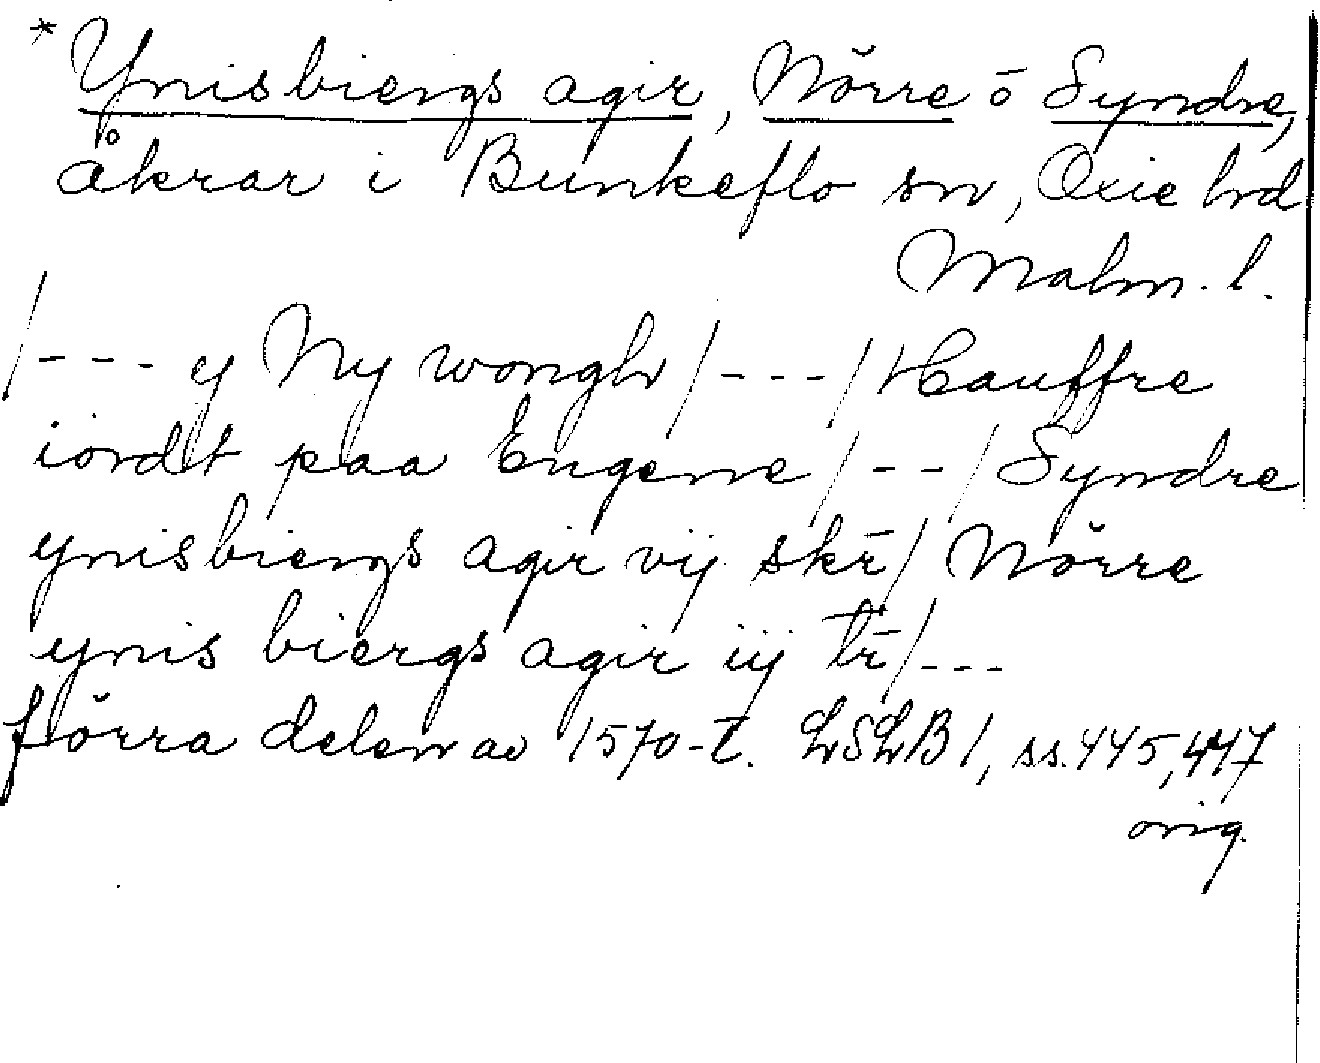 * Ynisbiergs agir, Nörre o Syndre,
åkrar i Bunkeflo sn, Oxie hd
Malm. l.
/--- y Ny wongh /---/ Hauffre
iordt paa Engene /--/ Syndre
ynisbiergs agir vij skr̄/ Nörre
ynis biergs agir iij tr̄/---
förra delen av 1570-t. LSLB 1, ss. 445, 447
orig.